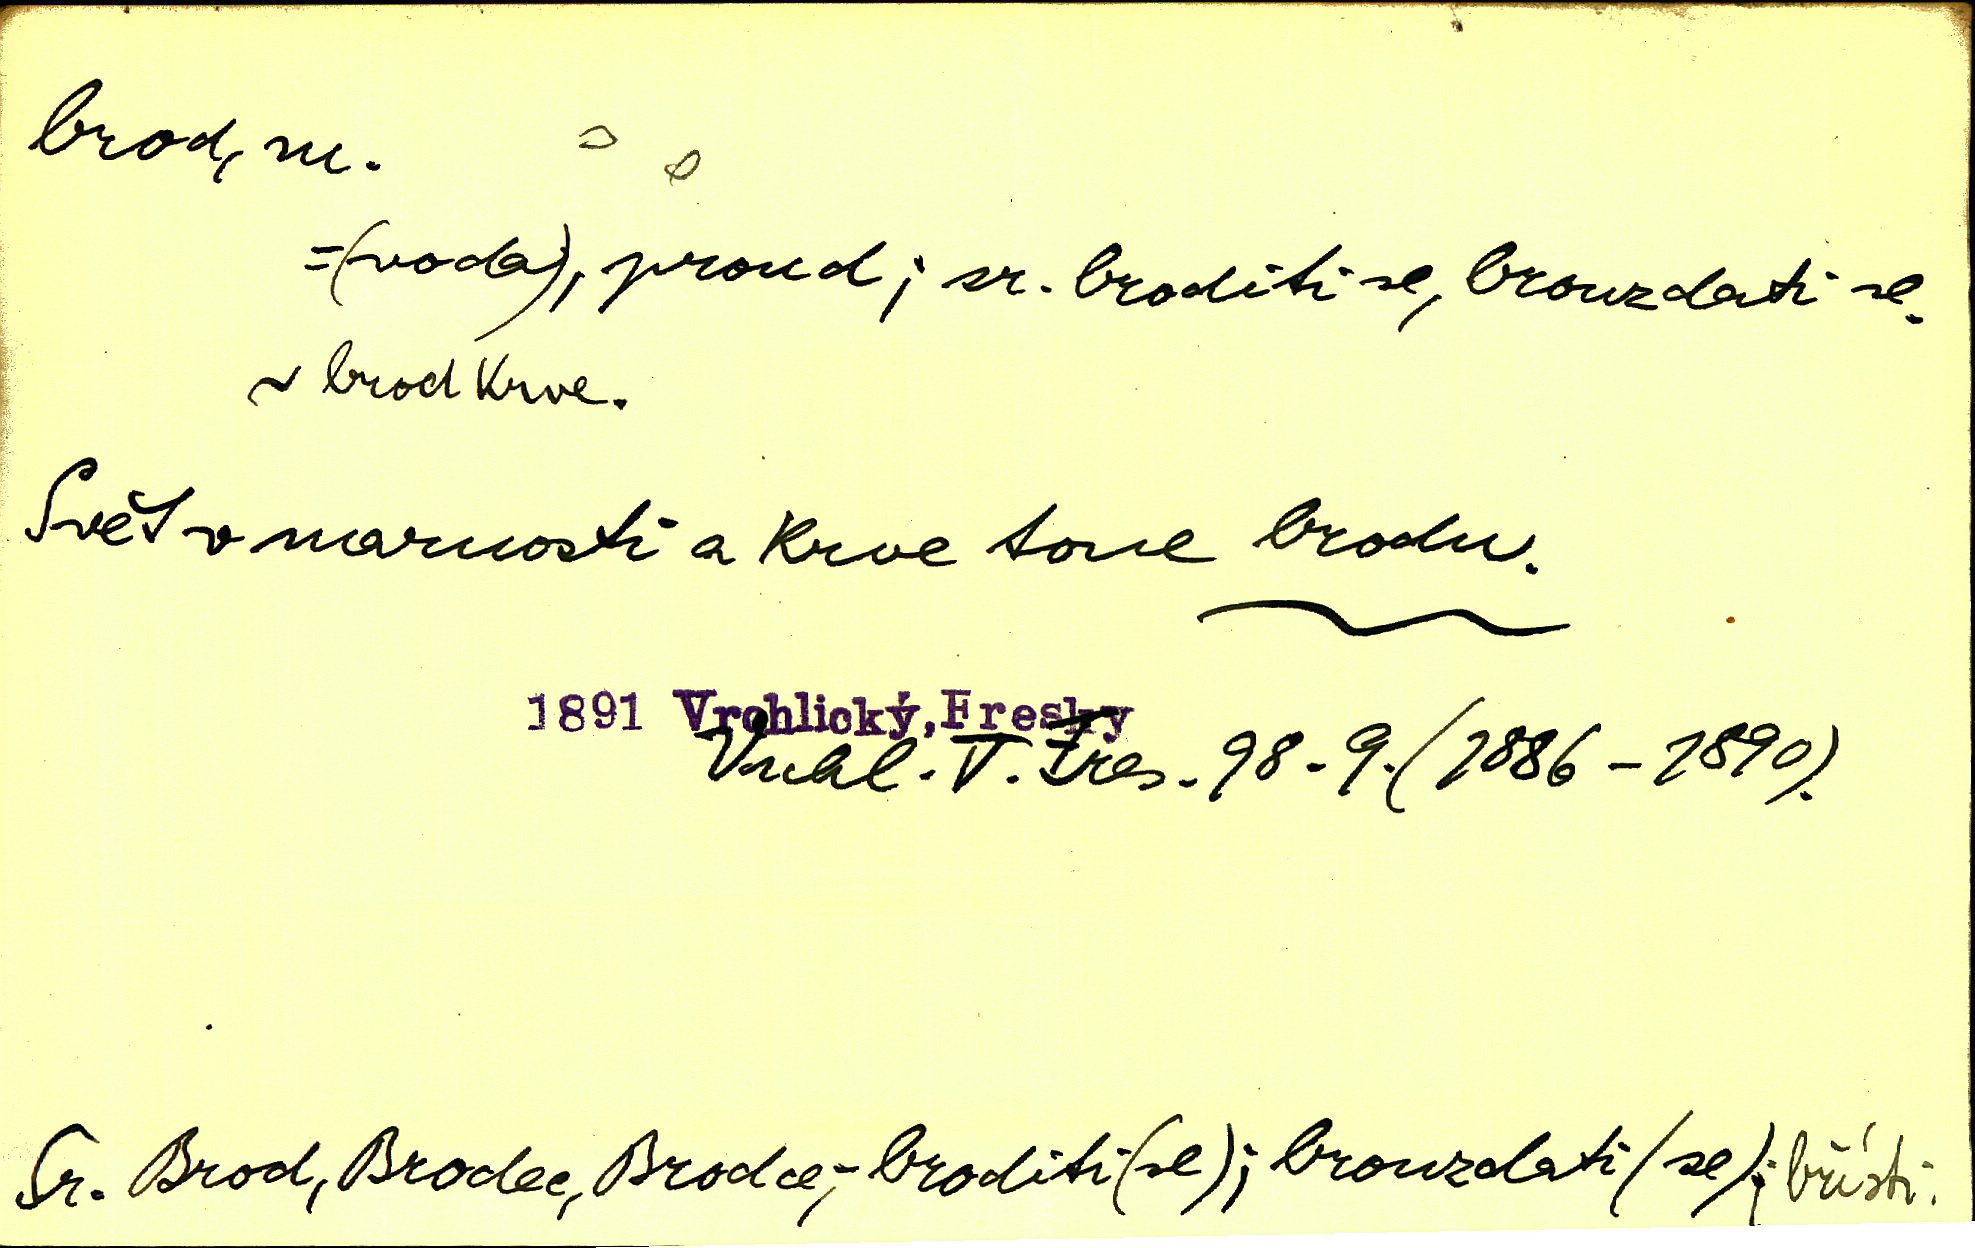 brod, m.
=(voda), proud; sr. broditi se, brouzdati se.
~ brod krve.
Svět v marnosti a krve tone brodu.
1891 Vrchlický, Fresky
Vrchl. V. Fres. 98-9. (1886-1890).
Sr. Brod, Brodec, Brodce; broditi (se); brouzdati (se); břísti.